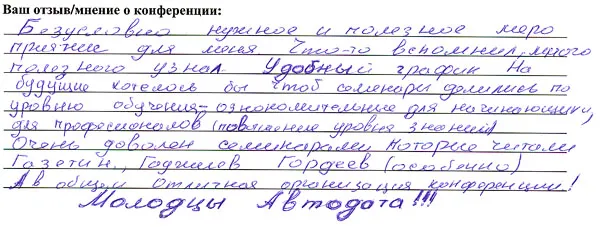 Ваш отзыв/мнение о конференции:
Безусловно нужное и полезное меро
приятие для меня Что-то вспомнил, много
полезного узнал. Удобный график На
будущие хотелось бы чтоб семинары делились по
уровню обучения - ознокомительные для начинающих,
для профессионалов (повышение уровня знаний)
Очень доволен семинарами которые читали
Газетин, Гаджиев Гордеев (особенно)
А в общем отличная организация конференции!
Молодцы Автодата!!!